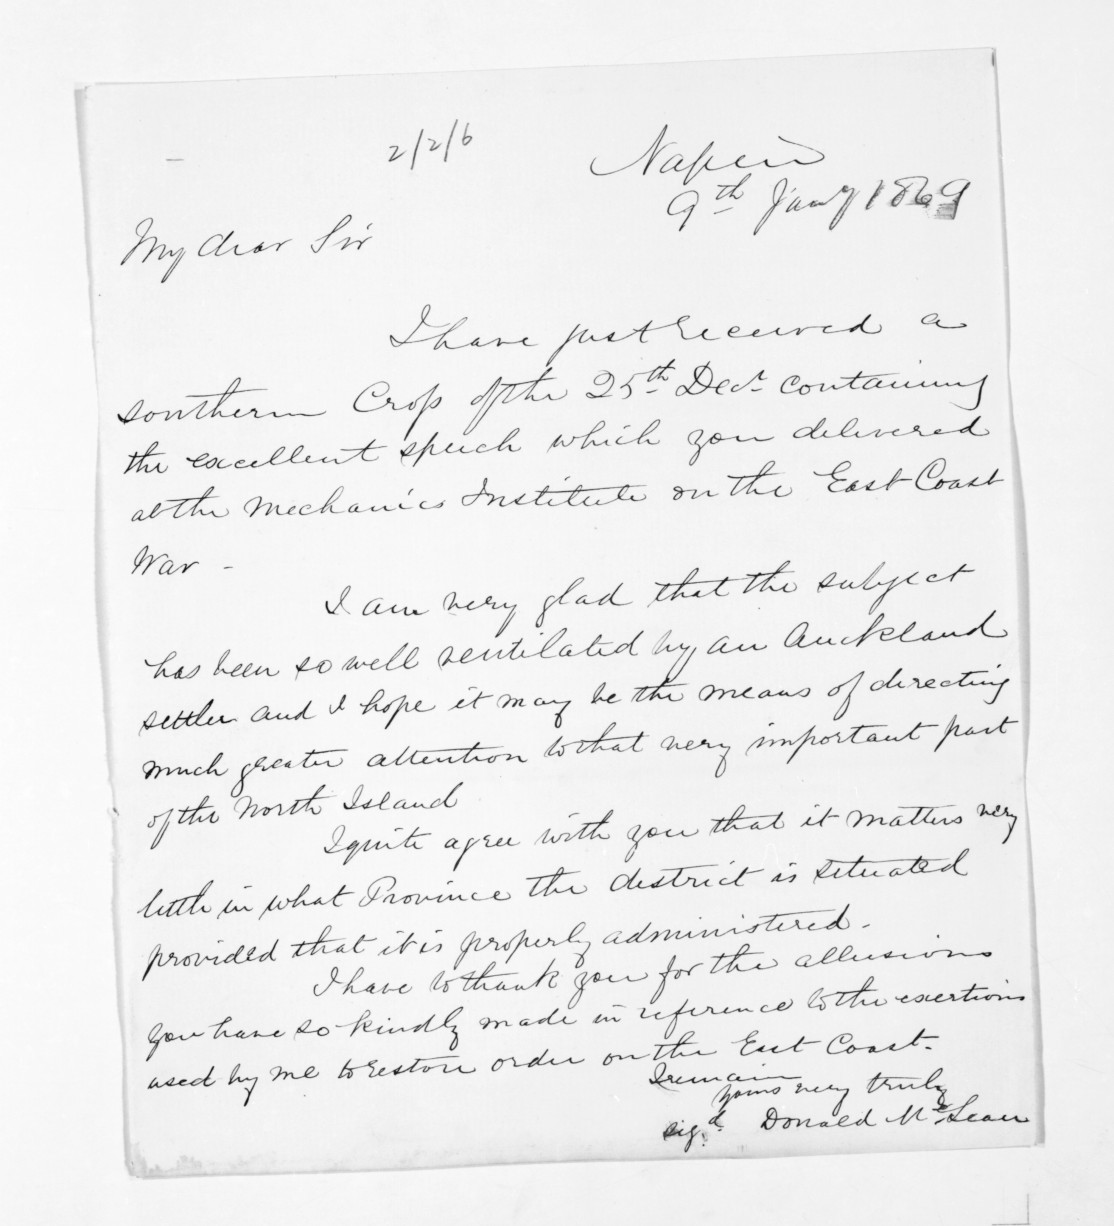 2/2/6
Napier
9th Jany 1869
My dear Sir
I have just received a
southern Crop of the 25th Decr. containing
the excellent speech which you delivered
at the Mechanics Institute on the East Coast
War -
I am very glad that the subject
has been so well ventilated by an Auckland
settler and I hope it may be the means of directing
much greater attention to that very important part
of the North Island
I quite agree with you that it matters very
little in what Province the district is situated
provided that it is properly administered.
I have to thank you for the allusions
you have so kindly made in reference to the exertions
used by me to restore order on the East Coast.
I remain
yours very truly
sigd. Donald McLean